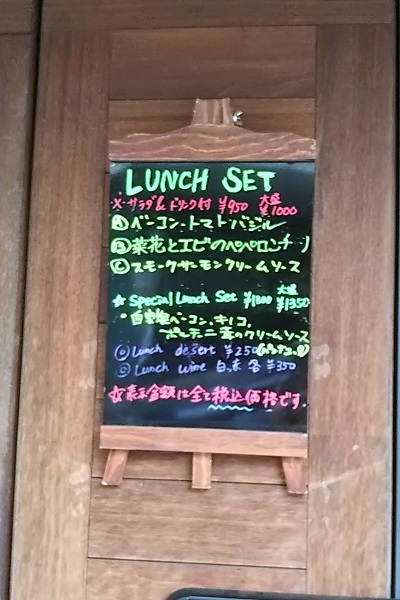 LUNCH SET
※サラダ&ドリンク付 ¥950 大盛 ¥1000
Ⓐベーコン・トマトバジル
Ⓑ菜花とエビのペペロンチーノ
Ⓒスモークサーモンクリームソース
☆Special Lunch Set ¥1300 大盛 ¥1350
・自家製ベーコン、キノコ、
ポルチーニ茸のクリームソース
◎Lunch desert ¥250
◎Lunch wine 白、赤 各¥350
☆表示金額は全て税込価格です。